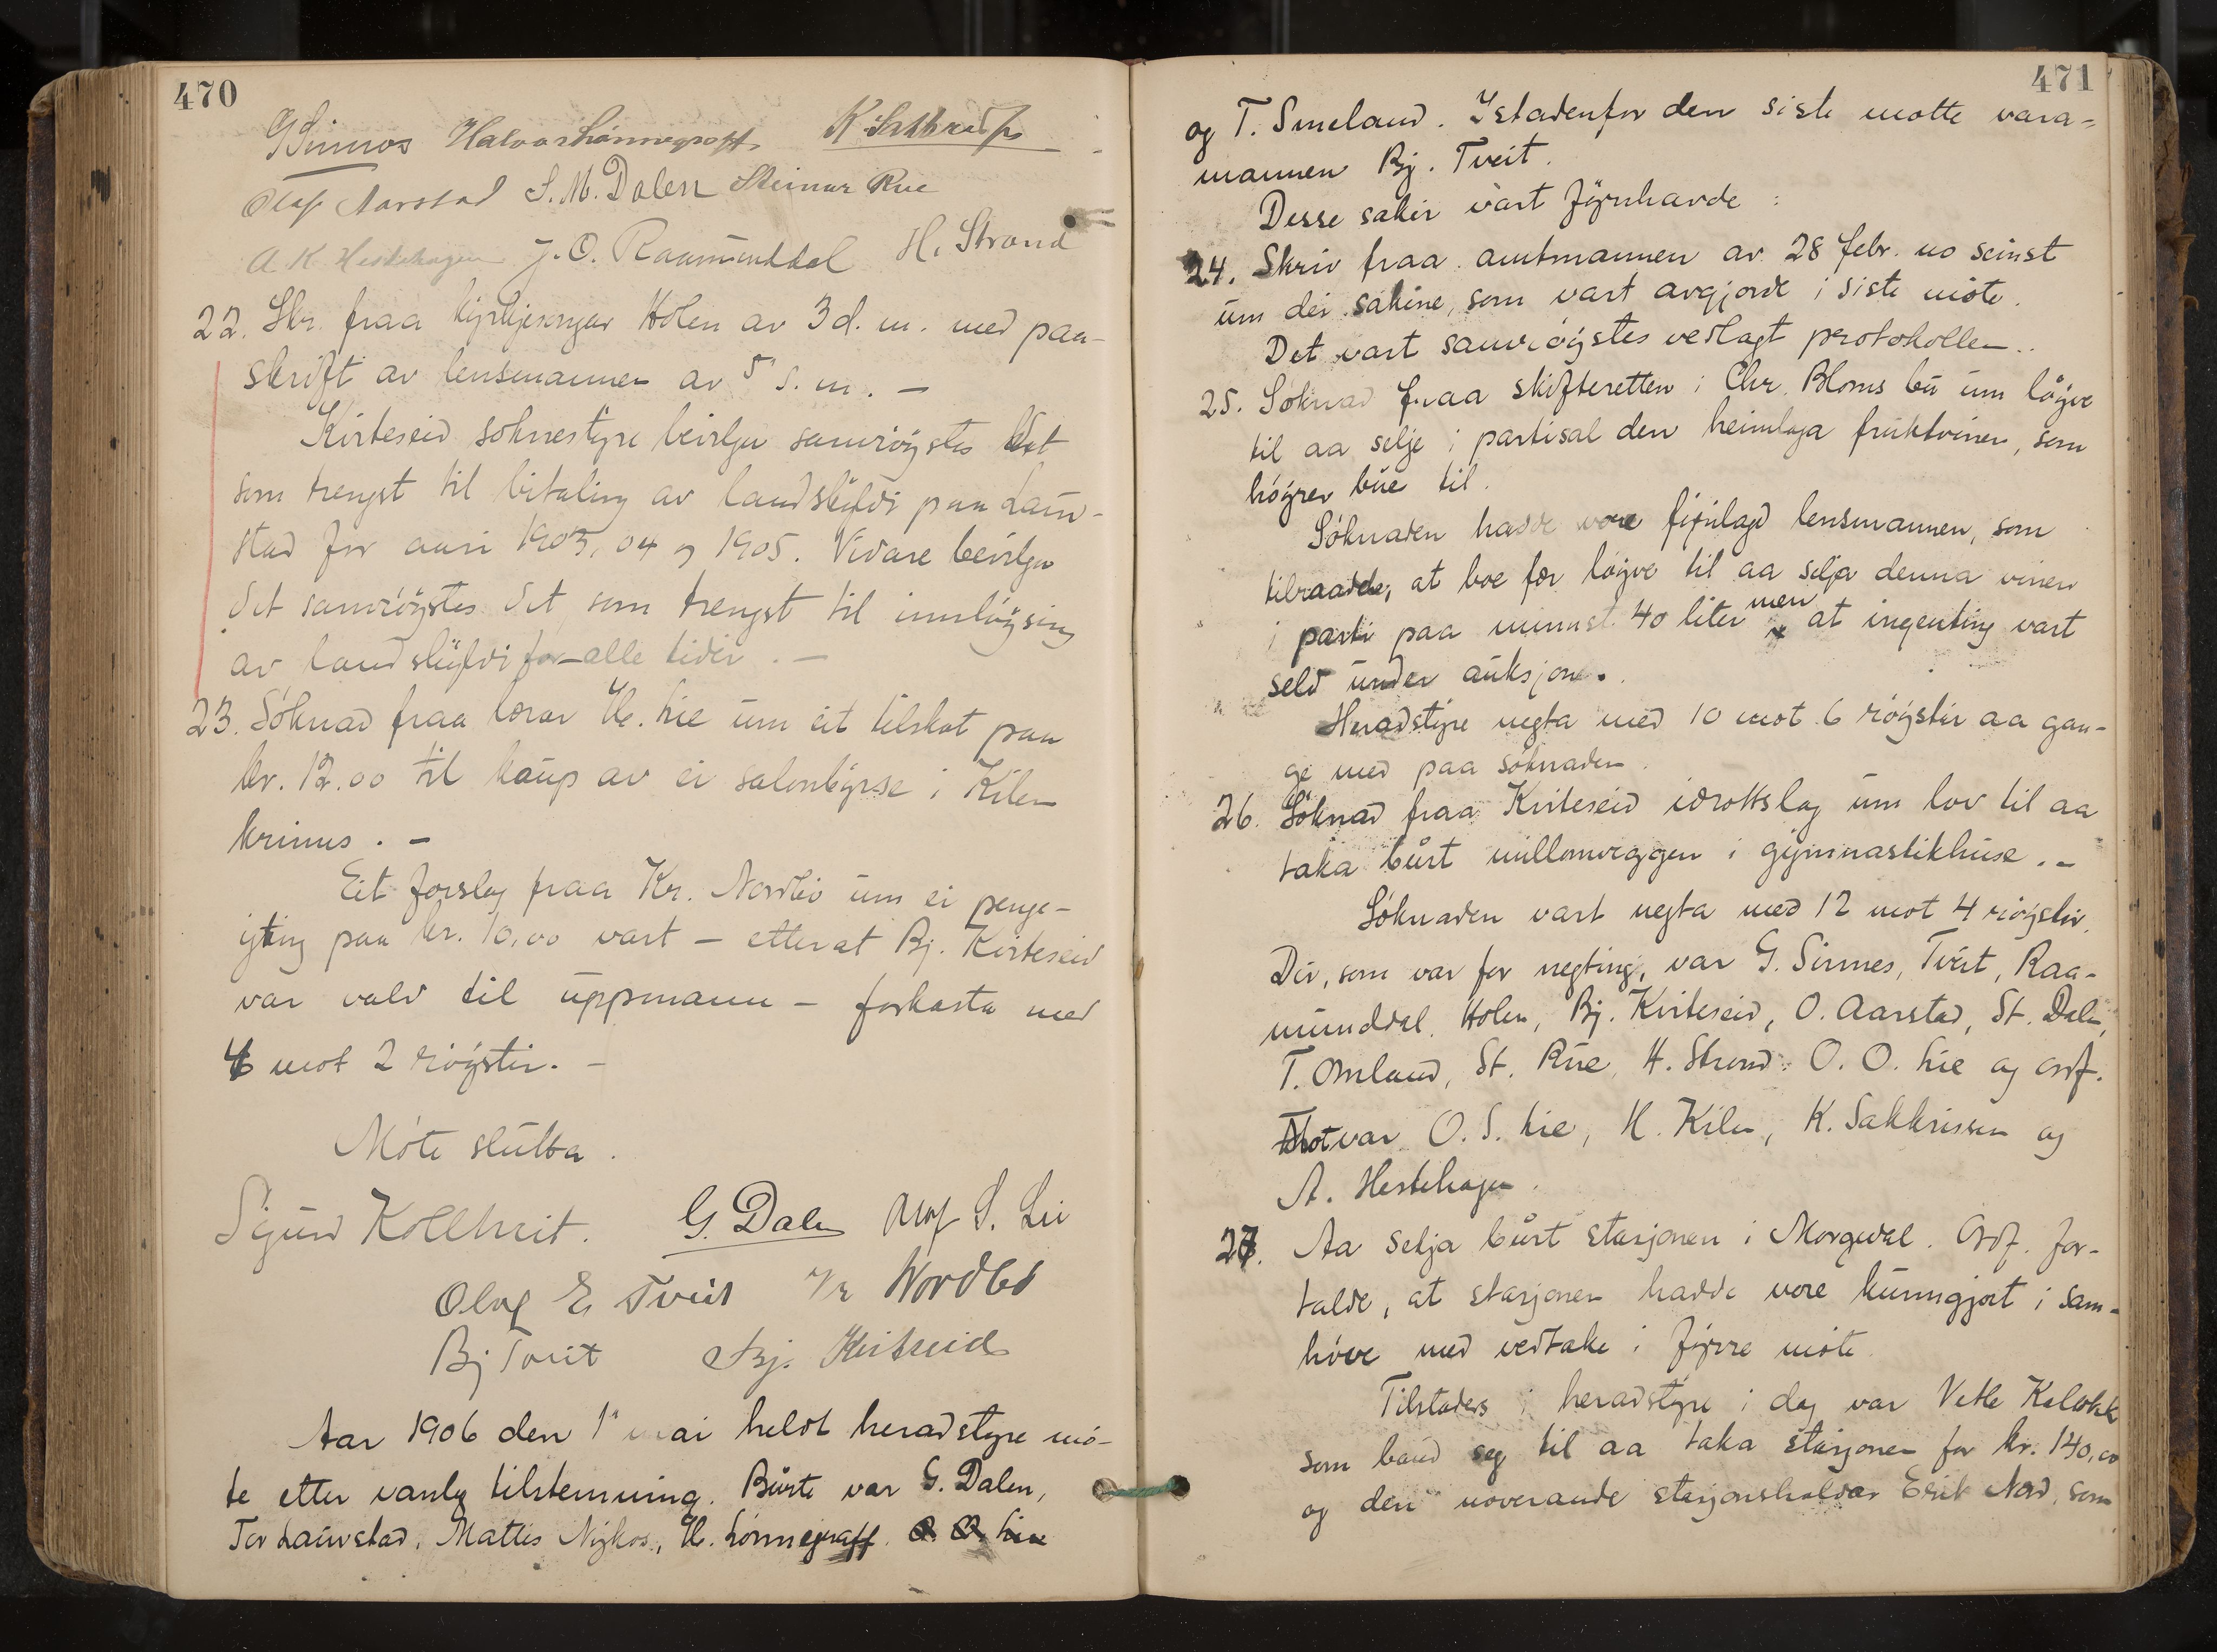 470
G Sinnes Halvor Lönnegraff K Sakkrisson
Olaf Aarstad S. M. Dalen Steinar Rue
A. K. Hestehagen J. O. Raamunddal H. Strand
22. Skr. fraa kyrkjesongar Holen av 3 d. m. med paa-
skrift av lensmannen av 5 s. m. -
Kviteseid soknestyre beivlga samröystes det
som trengst til bitaling av landskyldi paa Laur-
stad for aari 1903, 04 og 1905. Vidare beivlga
det samröystes det, som trengst til innlöysing
av landskyldi for alle tider. -
23. Söknad fraa lærar H. Lie um eit tilskot paa
kr. 12.00 til kaup av ei salonbyrse i Kilen
krinus. -
Eit forslag fraa Kr. Nordbö um ei penge-
yting paa kr. 10,00 vart - etterat Bj. Kviteseid
var vald til uppmann - forkasta med
6 mot 2 röyster. -
Möte slutta.
Sigurd Kolltveit. G. Dalen Olaf S. Lie
Olaf E. Tveit Kr Nordbö
Bj Tveit Bj. Kviteseid
Aar 1906 den 1 mai heldt heradstyre mö-
te etter vanleg tilstemning. Burte var G. Dalen,
Tor Laurstad, Mattis Nykos, H. Lönnegraff. O. O. Lie
471
og T. Smeland. Istadenfor den siste motte vara-
mannen Bj. Tveit.
Desse saker vart fyrehavde:
24. Skriv fraa amtmannen av 28 febr. no seinst
um dei sakine, som vart avgjorde i siste möte.
Det vart samröystes vedlagt protokollen.
25. Söknad fraa skifteretten i Chr. Bloms bu um löyve
til aa selje i partisal den heimlaga fruktvinen, som
höyrer bue til.
Söknaden hadde vore fyrilagd lensmannen, som
tilraadde, at boe fær löyve til aa selja denna vinen
i parti paa minnst 40 liter men at ingenting vart
seld under auksjon.
Heradstyre negta med 10 mot 6 röyster aa gan-
ge med paa söknaden.
26. Söknad fraa Kviteseid idrottslag um lov til aa
taka burt millomveggen i gymnastikhuse. -
Söknaden vart negta med 12 mot 4 röyster.
Dei, som var for negting, var G. Sinnes, Tveit, Raa-
munddal, Holen, Bj. Kviteseid, O. Aarstad, St. Dalen,
T. Omland, St. Rue, H. Strand, O. O. Lie og ordf.
Mot var O. S. Lie, H. Kilen, K. Sakkrissen og
A. Hestehagen.
27. Aa selja burt stasjonen i Morgedal. Ordf. for-
talde, at stasjonen hadde vore kunngjort i sam-
höve med vedtake i fyrre möte.
Tilstades i heradstyre i dag var Vetle
som baud seg til aa taka stasjonen for kr. 140,00
og den noverande stasjonshaldar Erik Nord, som